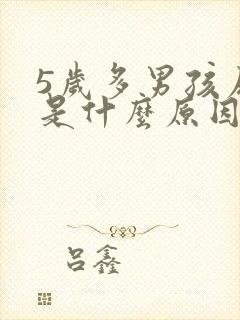 5歲多男孩
是什麼原因
吕鑫